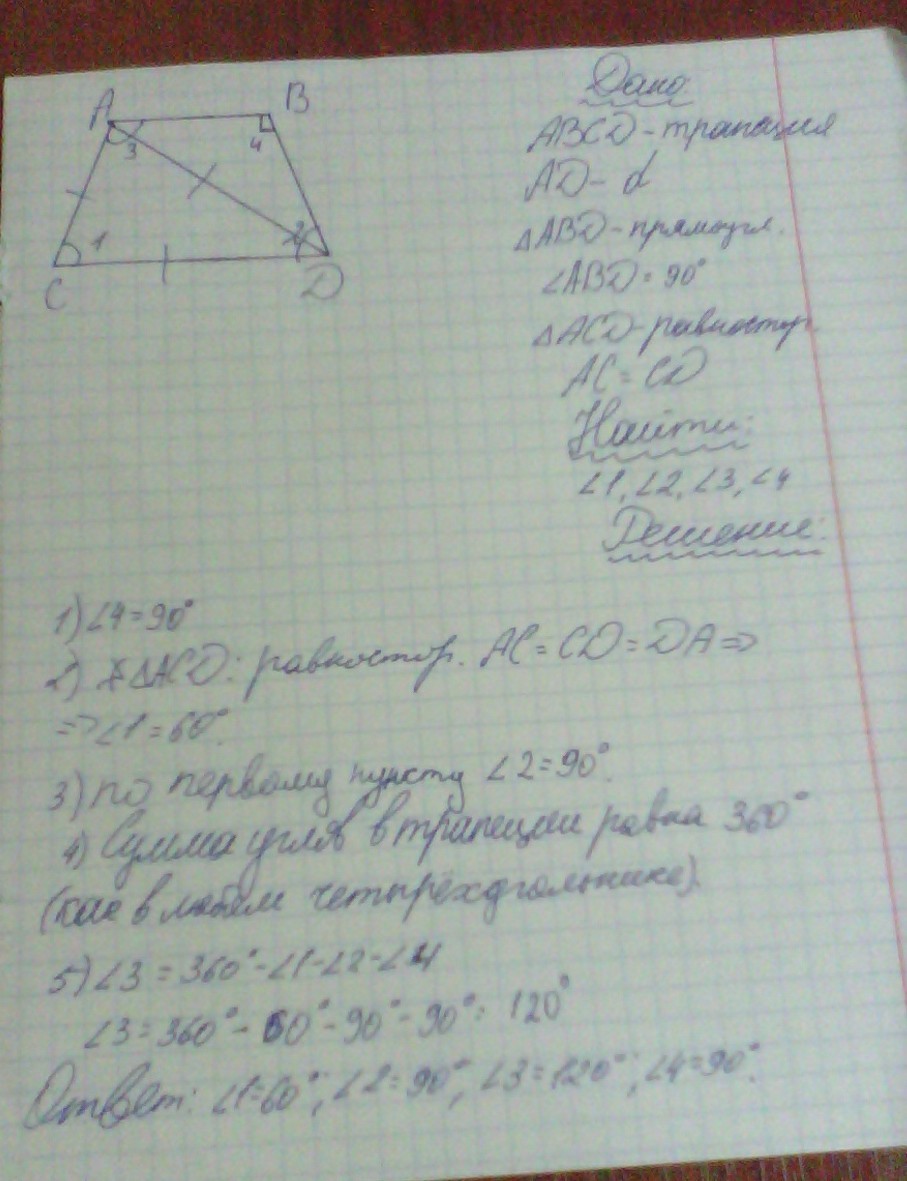 A
B
3
4
1
2
C
D
Дано:
ABCD - трапеция
AD - d
△ABD - прямоугл.
∠ABD = 90°
△ACD - равностор.
AC = CD
Найти:
∠1, ∠2, ∠3, ∠4
Решение:
1) ∠4 = 90°
2) △ACD: равностор. AC = CD = DA =>
=> ∠1 = 60°.
3) по первому пункту ∠2 = 90°.
4) Сумма углов в трапеции равна 360°
(как в любом четырёхугольнике).
5) ∠3 = 360° - ∠1 - ∠2 - ∠4
∠3 = 360° - 60° - 90° - 90° = 120°
Ответ: ∠1 = 60°; ∠2 = 90°; ∠3 = 120°; ∠4 = 90°.